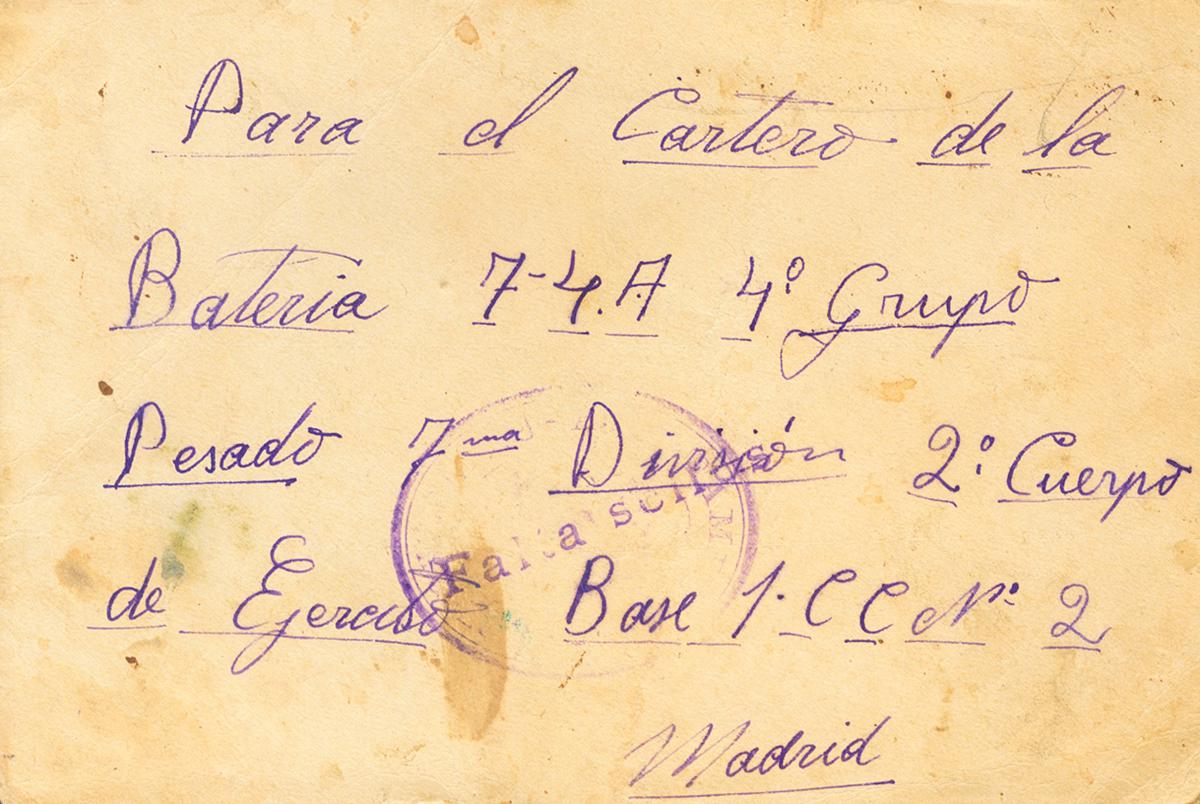 Para el Cartero de la
Bateria 7-4.A 4º Grupo
Pesado 7ma División 2º Cuerpo
Falta sello
de Ejercito Base 1. C C Nº 2
Madrid